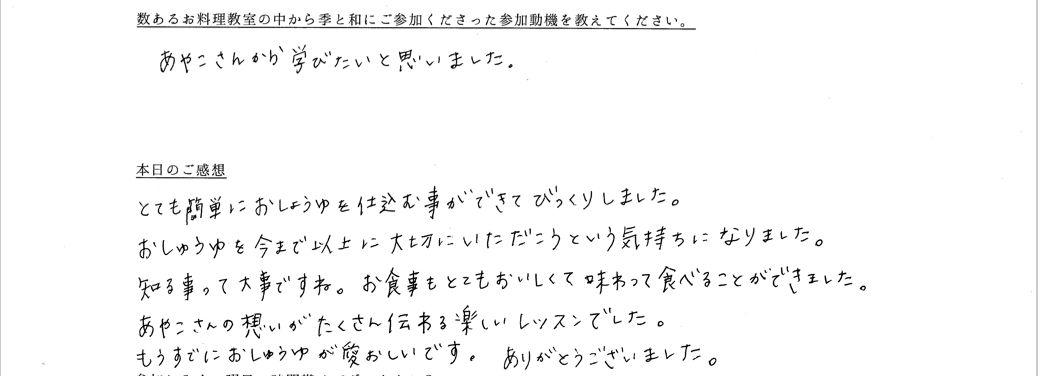 数あるお料理教室の中から季と和にご参加くださった参加動機を教えてください。
あやこさんから学びたいと思いました。
本日のご感想
とても簡単におしょうゆを仕込む事ができてびっくりしました。
おしゅうゆを今まで以上に大切にいただこうという気持ちになりました。
知る事って大事ですね。お食事もとてもおいしくて味わって食べることができました。
あやこさんの想いがたくさん伝わる楽しいレッスンでした。
もうすでにおしゅうゆが愛おしいです。ありがとうございました。